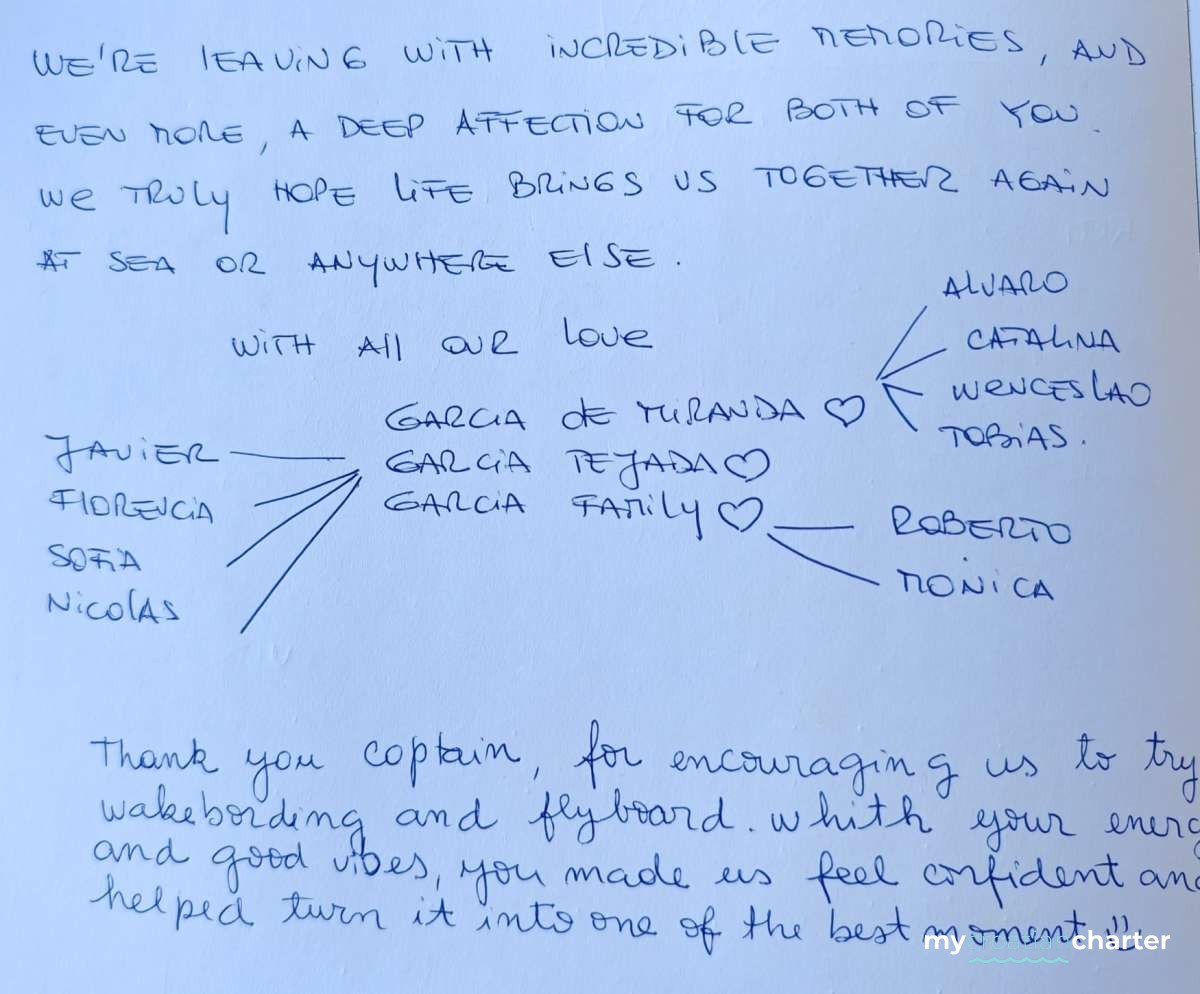 WE'RE LEAVING WITH INCREDIBLE MEMORIES, AND
EVEN MORE, A DEEP AFFECTION FOR BOTH OF YOU.
WE TRULY HOPE LIFE BRINGS US TOGETHER AGAIN
AT SEA OR ANYWHERE ELSE.
WITH All OUR love
GARCIA de MIRANDA ♡
ALVARO
CATALINA
WENCESLAO
TOBIAS.
GARCIA TEJADA ♡
JAVIER
FLORENCIA
SOFIA
NICOLAS
GARCIA FAMILY ♡
ROBERTO
MONICA
Thank you captain, for encouraging us to try
wakebording and flyboard. whith your energ
and good vibes, you made us feel confident and
helped turn it into one of the best moment !!!
my charter